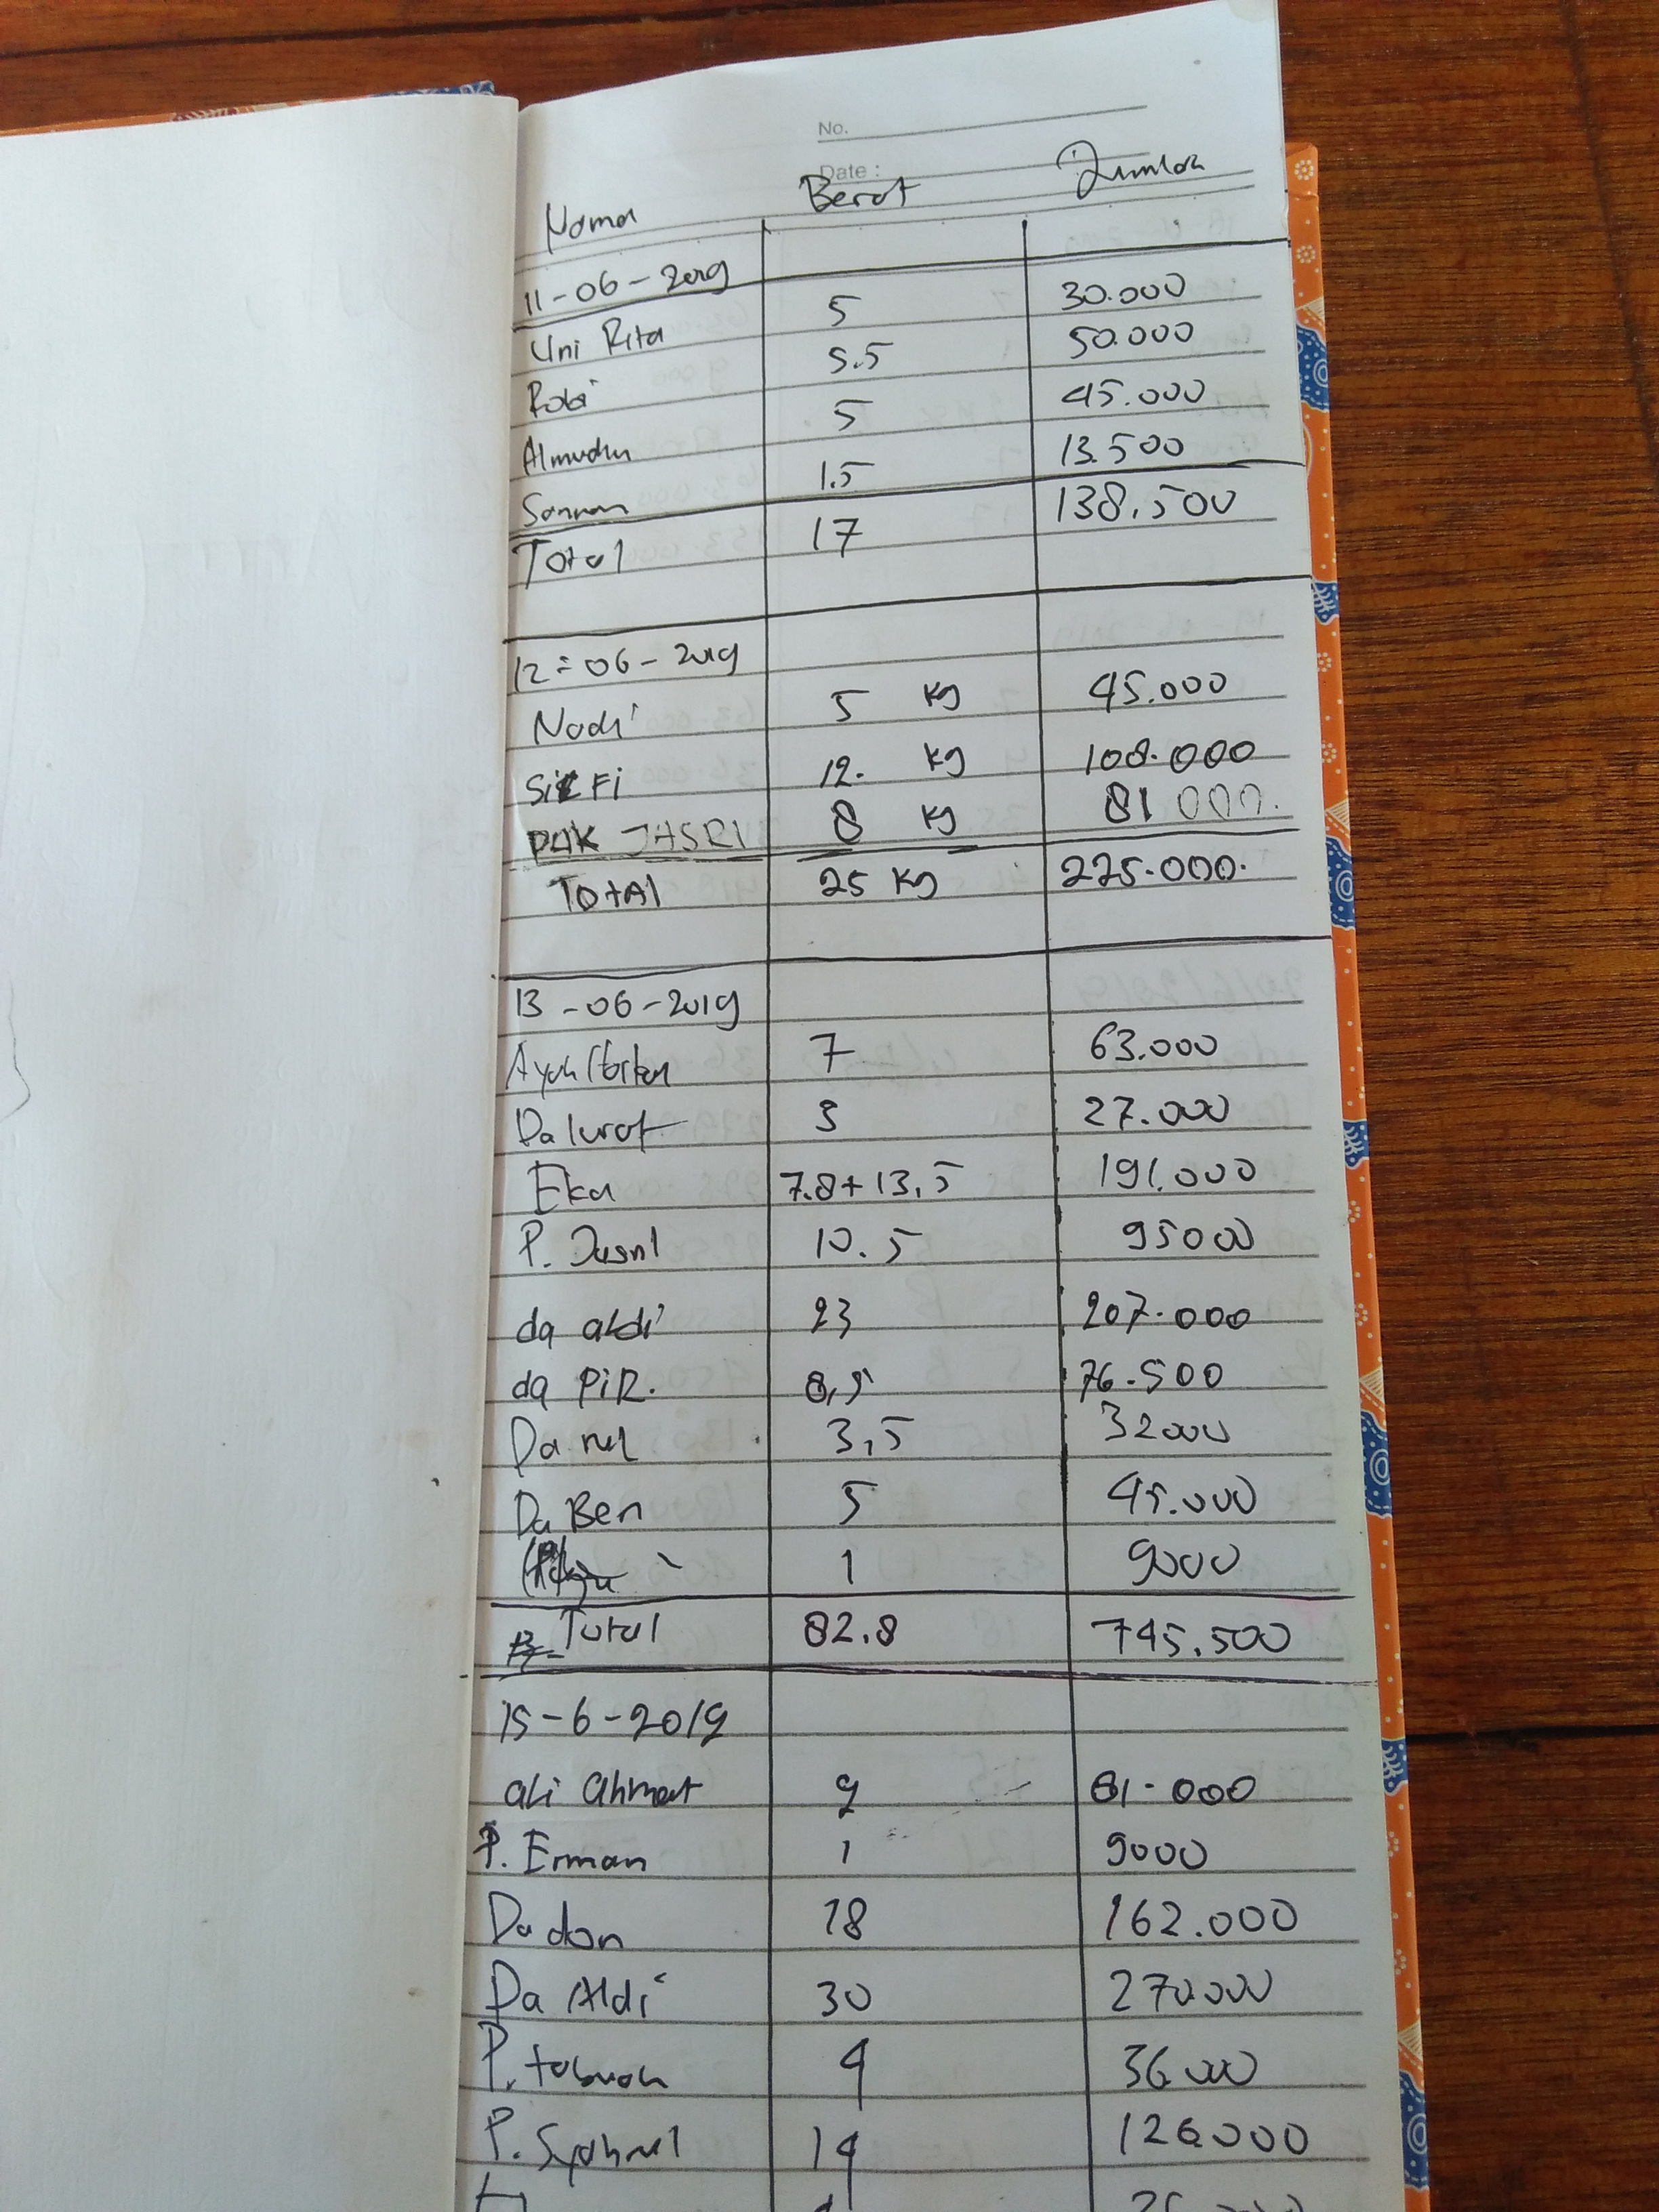 No.
Date :
Nama Berat Jumlah
11-06-2019
Uni Rita 5 30.000
Robi 5.5 50.000
5 45.000
1.5 13.500
Total 17 138.500
12-06-2019
Nadi 5 Kg 45.000
12. Kg 108.000
PAK JASRI 8 Kg 81 000.
TOTAl 25 Kg 225.000.
13-06-2019
Ayah 7 63.000
3 27.000
Eka 7.8+13,5 191.000
P. 10.5 95000
da aldi 23 207.000
da PiR. 8,5 76.500
Da 3,5 32000
Da Ben 5 45.000
1 9000
Total 82.8 745.500
15-6-2019
ali ahmat 9 81.000
P. Erman 1 9000
Da don 18 162.000
Da Aldi 30 270.000
P. 4 36000
P. Syahrul 14 126.000